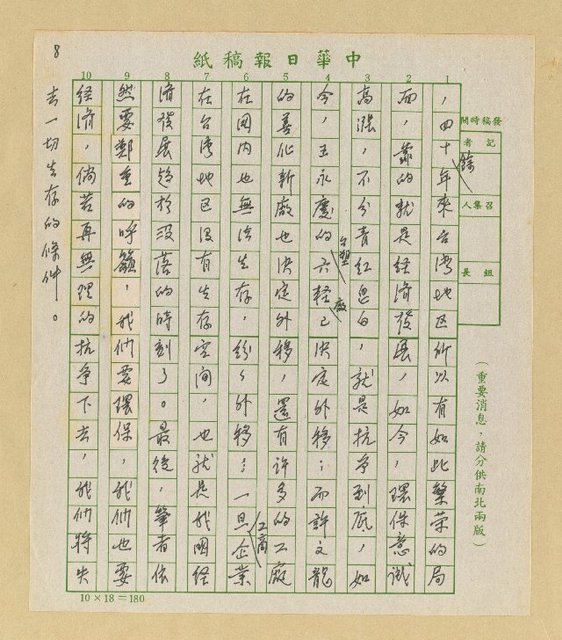 中華日報稿紙
發稿時間
記者
召集人
組長
（重要消息，請分供南北兩版）
1 2 3 4 5 6 7 8 9 10
，四十年來台灣地區所以有如此繁榮的局
面，靠的就是經濟發展，如今，環保意識
高漲，不分青紅皂白，就是抗爭到底，如
今，王永慶的台塑六輕廠已決定外移；而許文龍
的善化新廠也決定外移，還有許多的工廠
在國內也無法生存，紛紛外移；一旦工商企業
在台灣地區沒有生存空間，也就是我國經
濟發展趨於沒落的時刻了。最後，筆者依
然要鄭重的呼籲，我們要環保，我們也要
經濟，倘若再無理的抗爭下去，我們將失
去一切生存的條件。
8
10×18＝180